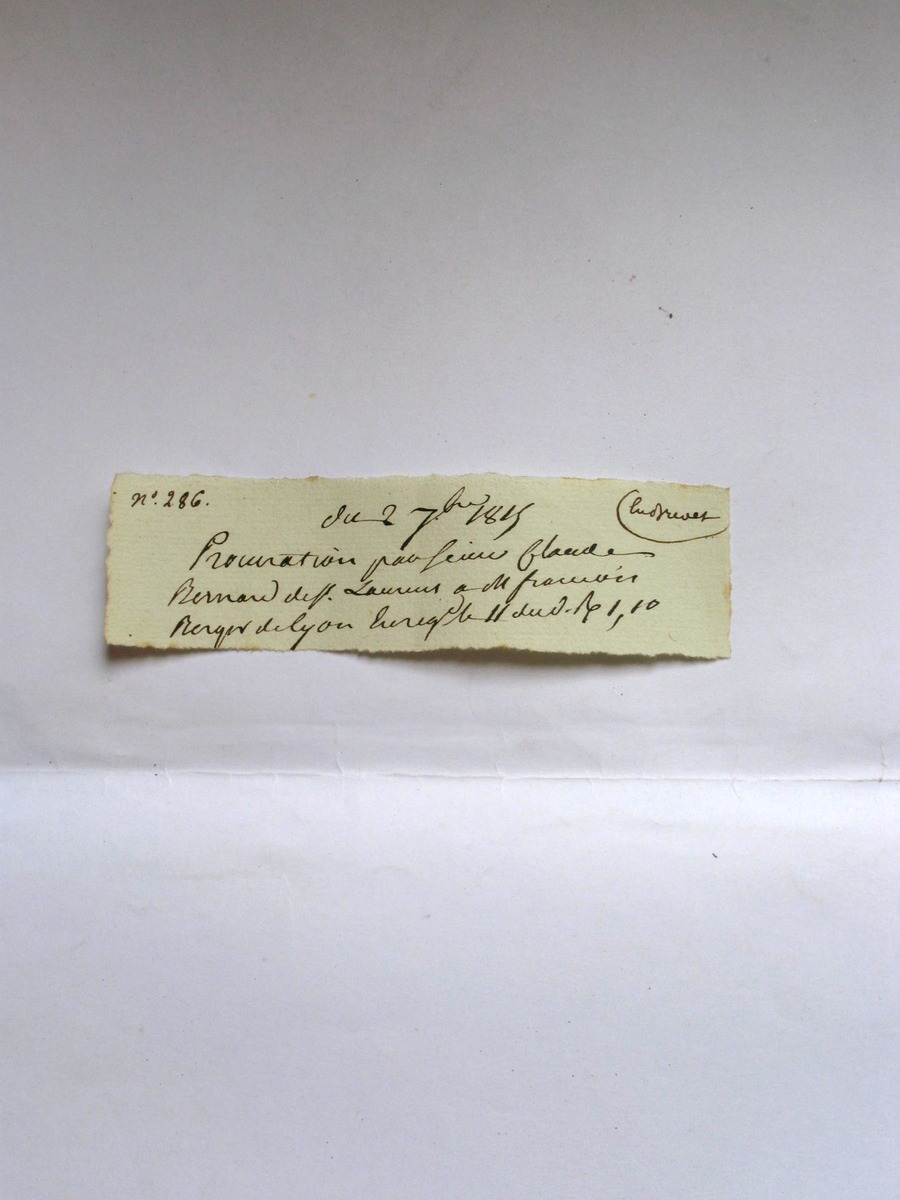 n°. 286.
En Brevet
du 2 7.bre 1815
Procuration par Claude
Bernard de St. Laurent a M francois
Berger de Lyon Enreg.é le 11 dud. R 1,10